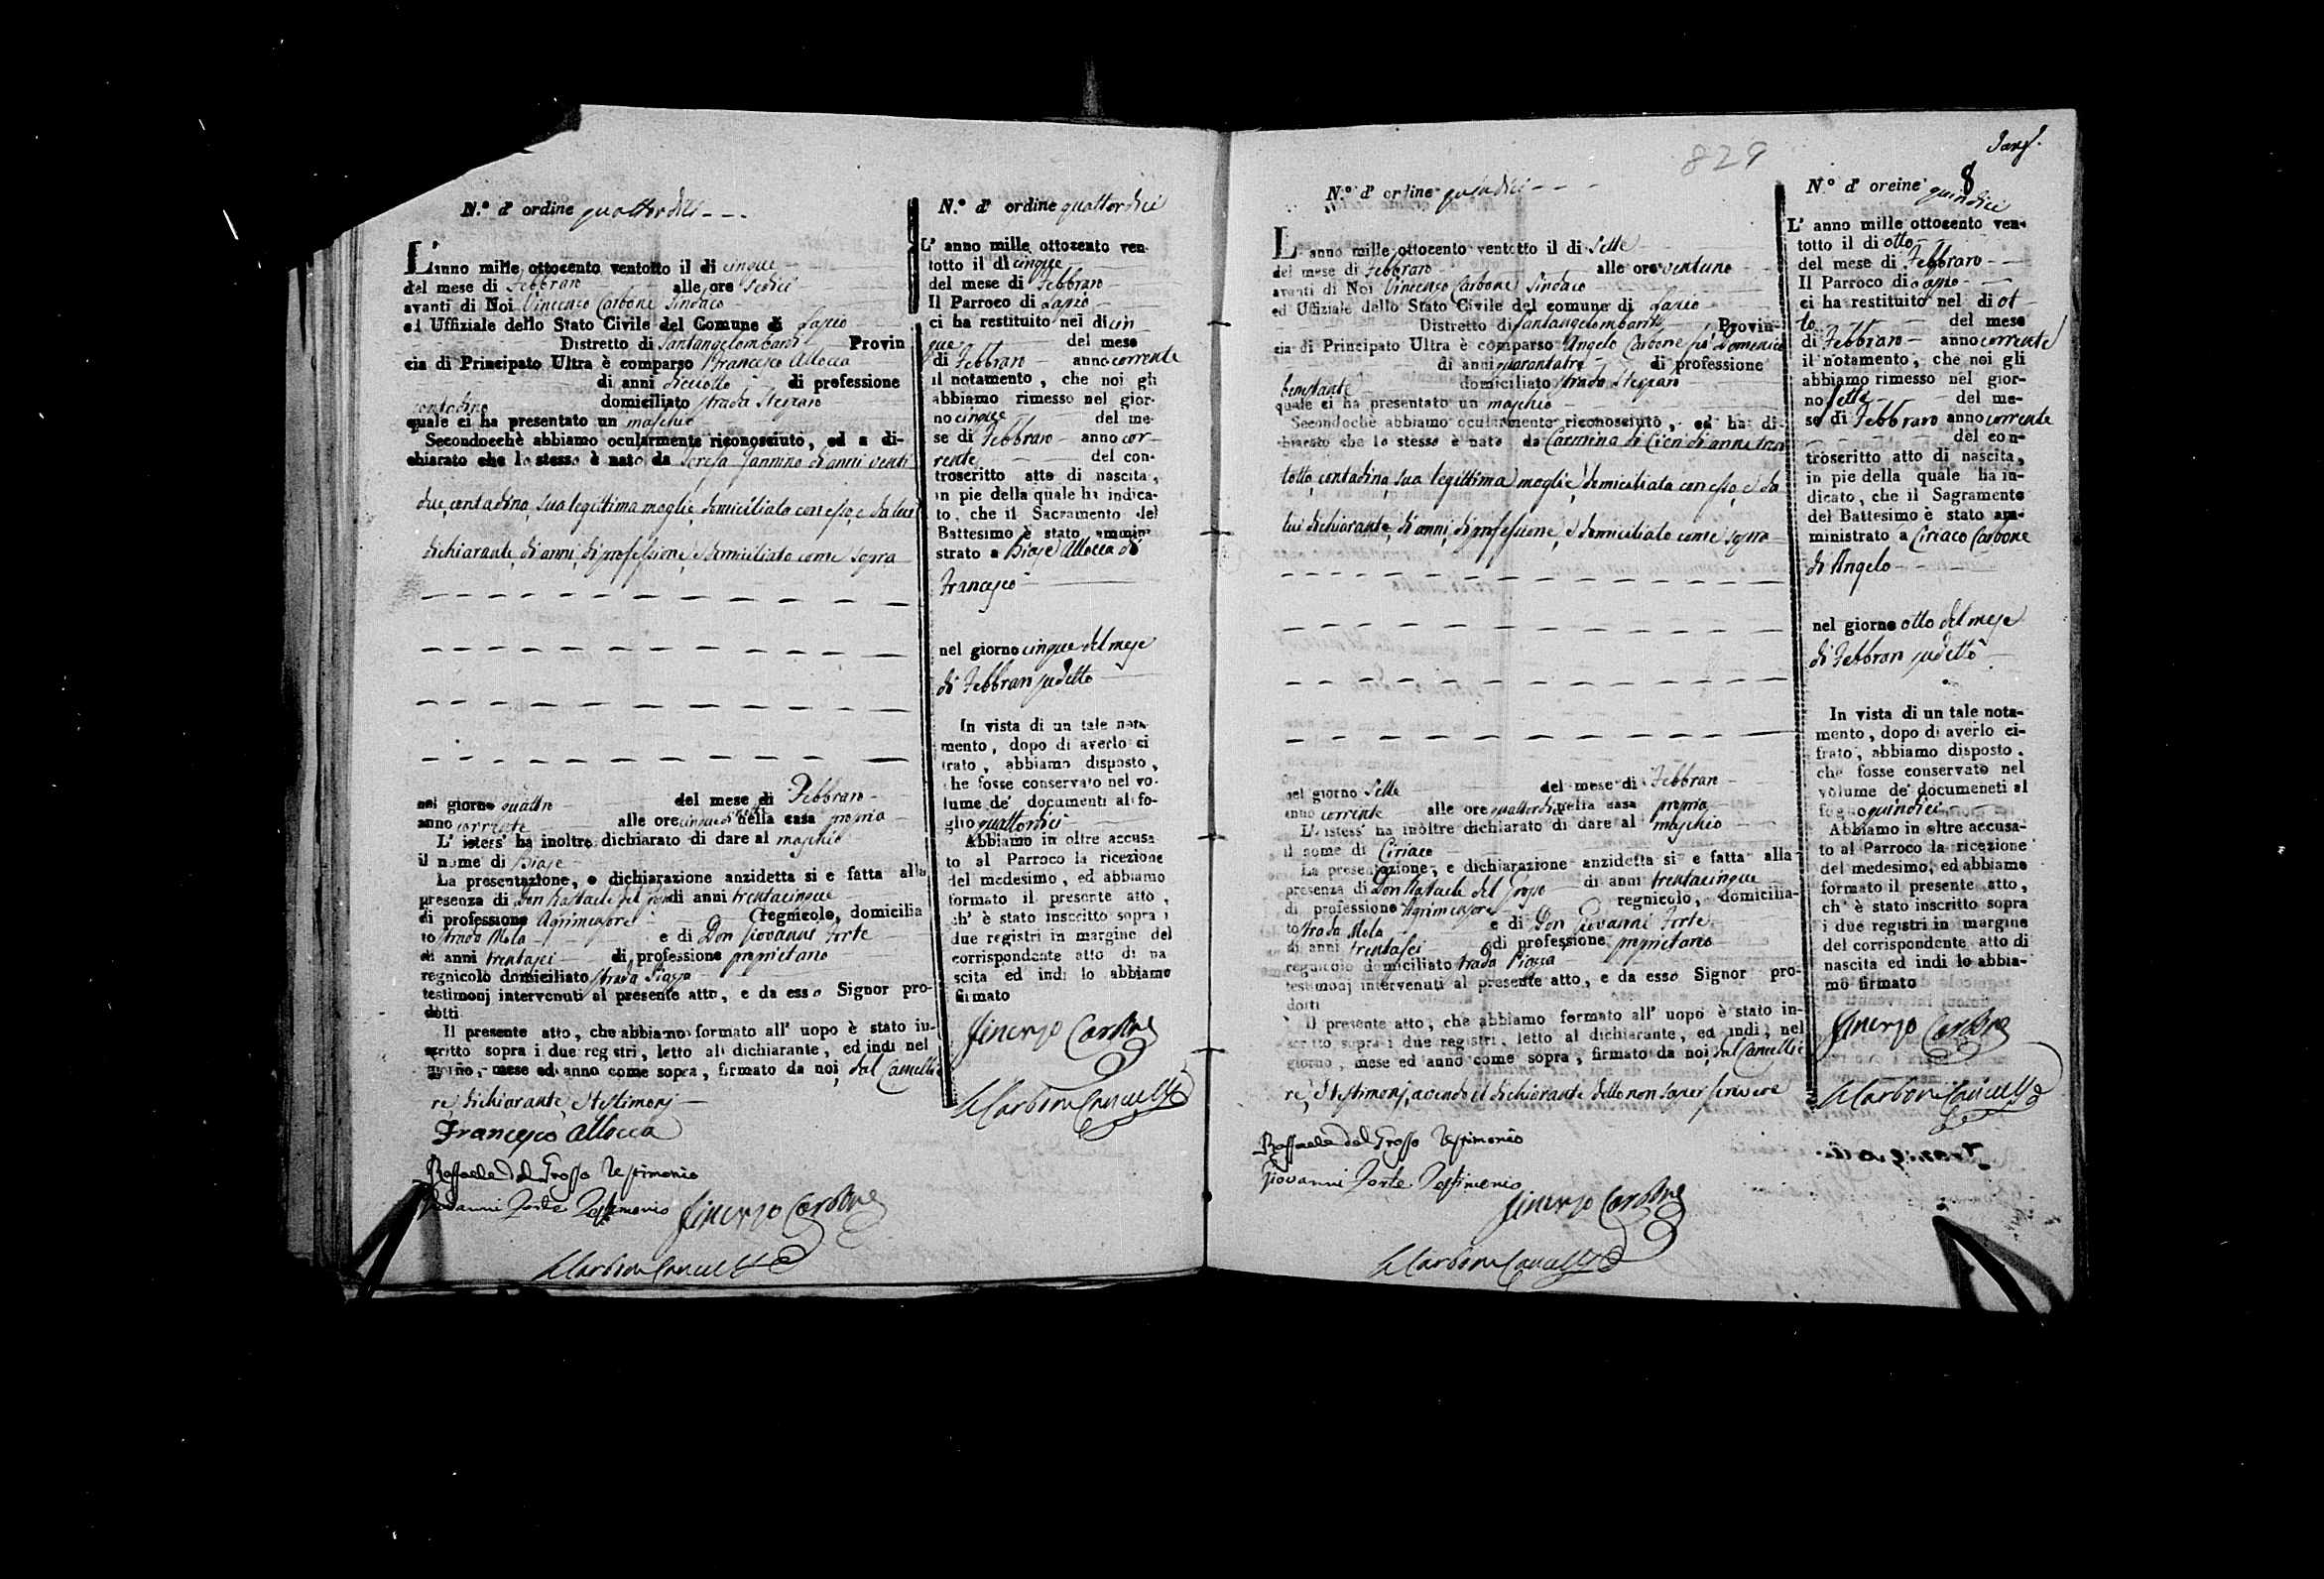 N.º d' ordine quattordici
L'anno mille ottocento ventotto il di cinque
del mese di Febbraro alle ore sedici
avanti di Noi Vincenzo Carbone Sindaco
ed Uffiziale dello Stato Civile del Comune di Lapio
Distretto di Santangelombardi Provin
cia di Principato Ultra è comparso Francesco Allocca
di anni diciotto di professione
contadino domiciliato strada Stegraro
quale ci ha presentato un maschio
Secondocchè abbiamo ocularmente riconosciuto, ed a di-
chiarato che lo stesso è nato da Teresa Jannino di anni venti
due, contadina, sua legittima moglie, domiciliata con esso, e da lui
dichiarante, di anni, di professione, e domiciliato come sopra
nel giorno quattro del mese di Febbraro
anno corrente alle ore cinque di notte nella casa propria
L' istess' ha inoltre dichiarato di dare al maschio
il nome di Biase
La presentazione, e dichiarazione anzidetta si e fatta alla
presenza di Don Raffaele del Grosso di anni trentacinque
di professione Agrimensore regnicolo, domicilia
to strada Mela e di Don Giovanni Forte
di anni trentasei di professione proprietario
regnicolo domiciliato strada Piazza
testimonj intervenuti al presente atto, e da esso Signor pro-
dotti
Il presente atto, che abbiamo formato all' uopo è stato in-
scritto sopra i due registri, letto al dichiarante, ed indi nel
giorno, mese ed anno come sopra, firmato da noi, dal Cancellie
re, dichiarante, e testimonj
Francesco Allocca
Raffaele del Grosso Testimonio
Giovanni Forte Testimonio Vincenzo Carbone
Carbone Cancell
N.º d' ordine quattordici
L' anno mille ottocento ven-
totto il di cinque
del mese di Febbraro
Il Parroco di Lapio
ci ha restituito nel di cin
que del mese
di Febbraro anno corrente
il notamento, che noi gli
abbiamo rimesso nel gior-
no cinque del me-
se di Febbraro anno cor-
rente del con-
troscritto atto di nascita,
in pie della quale ha indica-
to, che il Sacramento del
Battesimo è stato ammini
strato a Biase Allocca di
Francesco
nel giorno cinque del mese
di Febbraro sudetto
In vista di un tale nota
mento, dopo di averlo ci
frato, abbiamo disposto,
che fosse conservato nel vo-
lume de' documenti al fo-
glio quattordici
Abbiamo in oltre accusa
to al Parroco la ricezione
del medesimo, ed abbiamo
formato il presente atto,
ch' è stato inscritto sopra i
due registri in margine del
corrispondente atto di na
scita ed indi lo abbiamo
firmato
Vincenzo Carbone
Carbone Cancell
829
8
N.º d' ordine quindici
L' anno mille ottocento ventotto il di sette
del mese di Febbraro alle ore ventuno
avanti di Noi Vincenzo Carbone Sindaco
ed Uffiziale dello Stato Civile del comune di Lapio
Distretto di Santangelombardi Provin-
cia di Principato Ultra è comparso Angelo Carbone fu Domenico
di anni quarantatre di professione
benestante domiciliato strada Stegraro
quale ci ha presentato un maschio
Secondochè abbiamo ocularmente riconosciuto, ed ha di-
chiarato che lo stesso è nato da Carmina di Cicco di anni tren
totto, contadina, sua legittima moglie, domiciliata con esso, e da
lui dichiarante, di anni, di professione, e domiciliato come sopra
nel giorno sette del mese di Febbraro
anno corrente alle ore quattordici nella casa propria
L' istess' ha inoltre dichiarato di dare al maschio
il nome di Ciriaco
La presentazione, e dichiarazione anzidetta si e fatta alla
presenza di Don Raffaele del Grosso di anni trentacinque
di professione Agrimensore regnicolo, domicilia-
to strada Mela e di Don Giovanni Forte
di anni trentasei di professione proprietario
regnicolo domiciliato strada Piazza
testimonj intervenuti al presente atto, e da esso Signor pro-
dotti
Il presente atto, che abbiamo formato all' uopo è stato in-
scritto sopra i due registri, letto al dichiarante, ed indi, nel
giorno, mese ed anno come sopra, firmato da noi, dal Cancellie
re, e testimonj, avendo il dichiarante detto non saper scrivere
Raffaele del Grosso Testimonio
Giovanni Forte Testimonio
Vincenzo Carbone
Carbone Cancell
N.º d' oreine quindici
L' anno mille ottocento ven-
totto il di otto
del mese di Febbraro
Il Parroco di Lapio
ci ha restituito nel di ot
to del mese
di Febbraro anno corrente
il notamento, che noi gli
abbiamo rimesso nel gior-
no sette del me-
se di Febbraro anno corrente
del con-
troscritto atto di nascita,
in pie della quale ha in-
dicato, che il Sagramento
del Battesimo è stato am-
ministrato a Ciriaco Carbone
di Angelo
nel giorno otto del mese
di Febbraro sudetto
In vista di un tale nota-
mento, dopo di averlo ci-
frato, abbiamo disposto,
che fosse conservato nel
volume de' documeneti al
foglio quindici
Abbiamo in oltre accusa-
to al Parroco la ricezione
del medesimo, ed abbiamo
formato il presente atto,
ch' è stato inscritto sopra
i due registri in margine
del corrispondente atto di
nascita ed indi lo abbia-
mo firmato
Vincenzo Carbone
Carbone Cancell